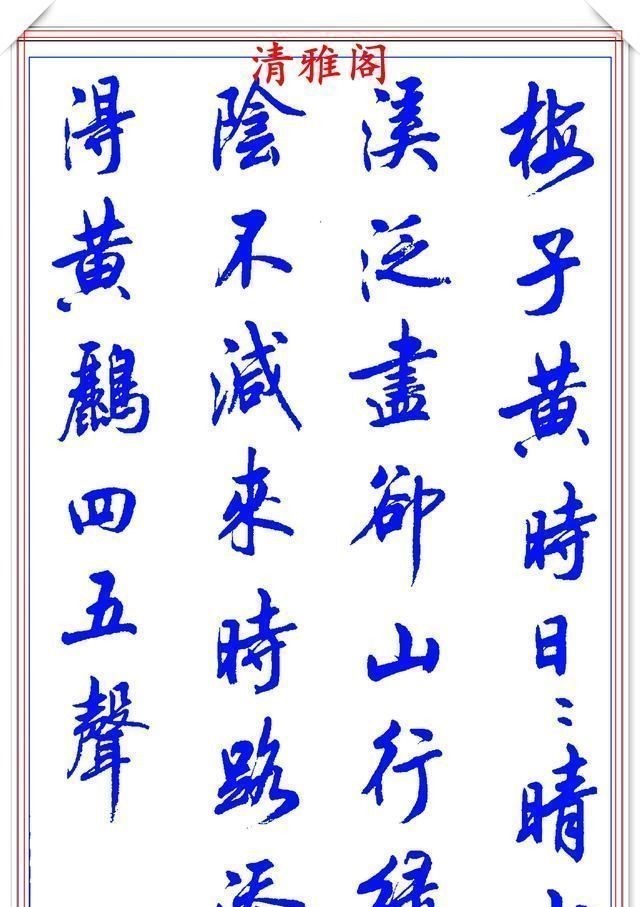 清雅阁
梅子黄時日〻晴
溪泛盡卻山行
陰不減來時路
淂黄鸝四五聲